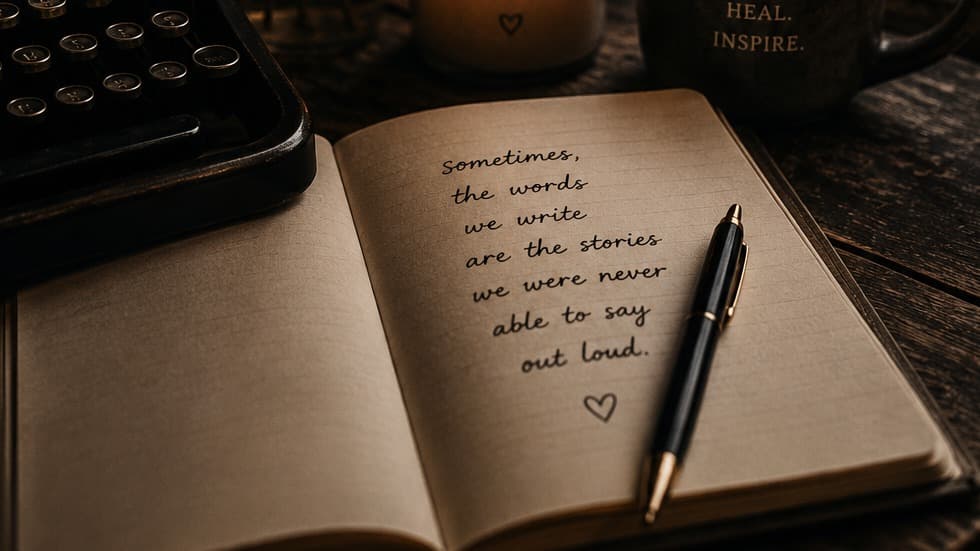 HEAL.
INSPIRE.
Sometimes,
the words
we write
are the stories
we were never
able to say
out loud.